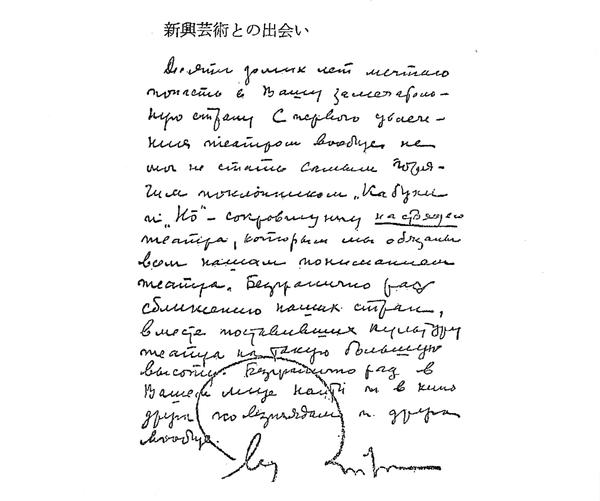 新興芸術との出会い
Десяти долгих лет мечтаю
попасть в Вашу замечатель-
ную страну С первого увлече-
ния театром вообще не
мог не стать самым горя-
чим поклонником „Кабуки
и „Но" - сокровищницу настоящего
театра, которым мы обязаны
всем нашим пониманием
театра. Безгранично рад
сближению наших стран,
вместе поставивших культуру
театра на такую большую
высоту. Безгранично рад в
Вашем лице найти и в кино
друга по взглядам и друга
вообще.